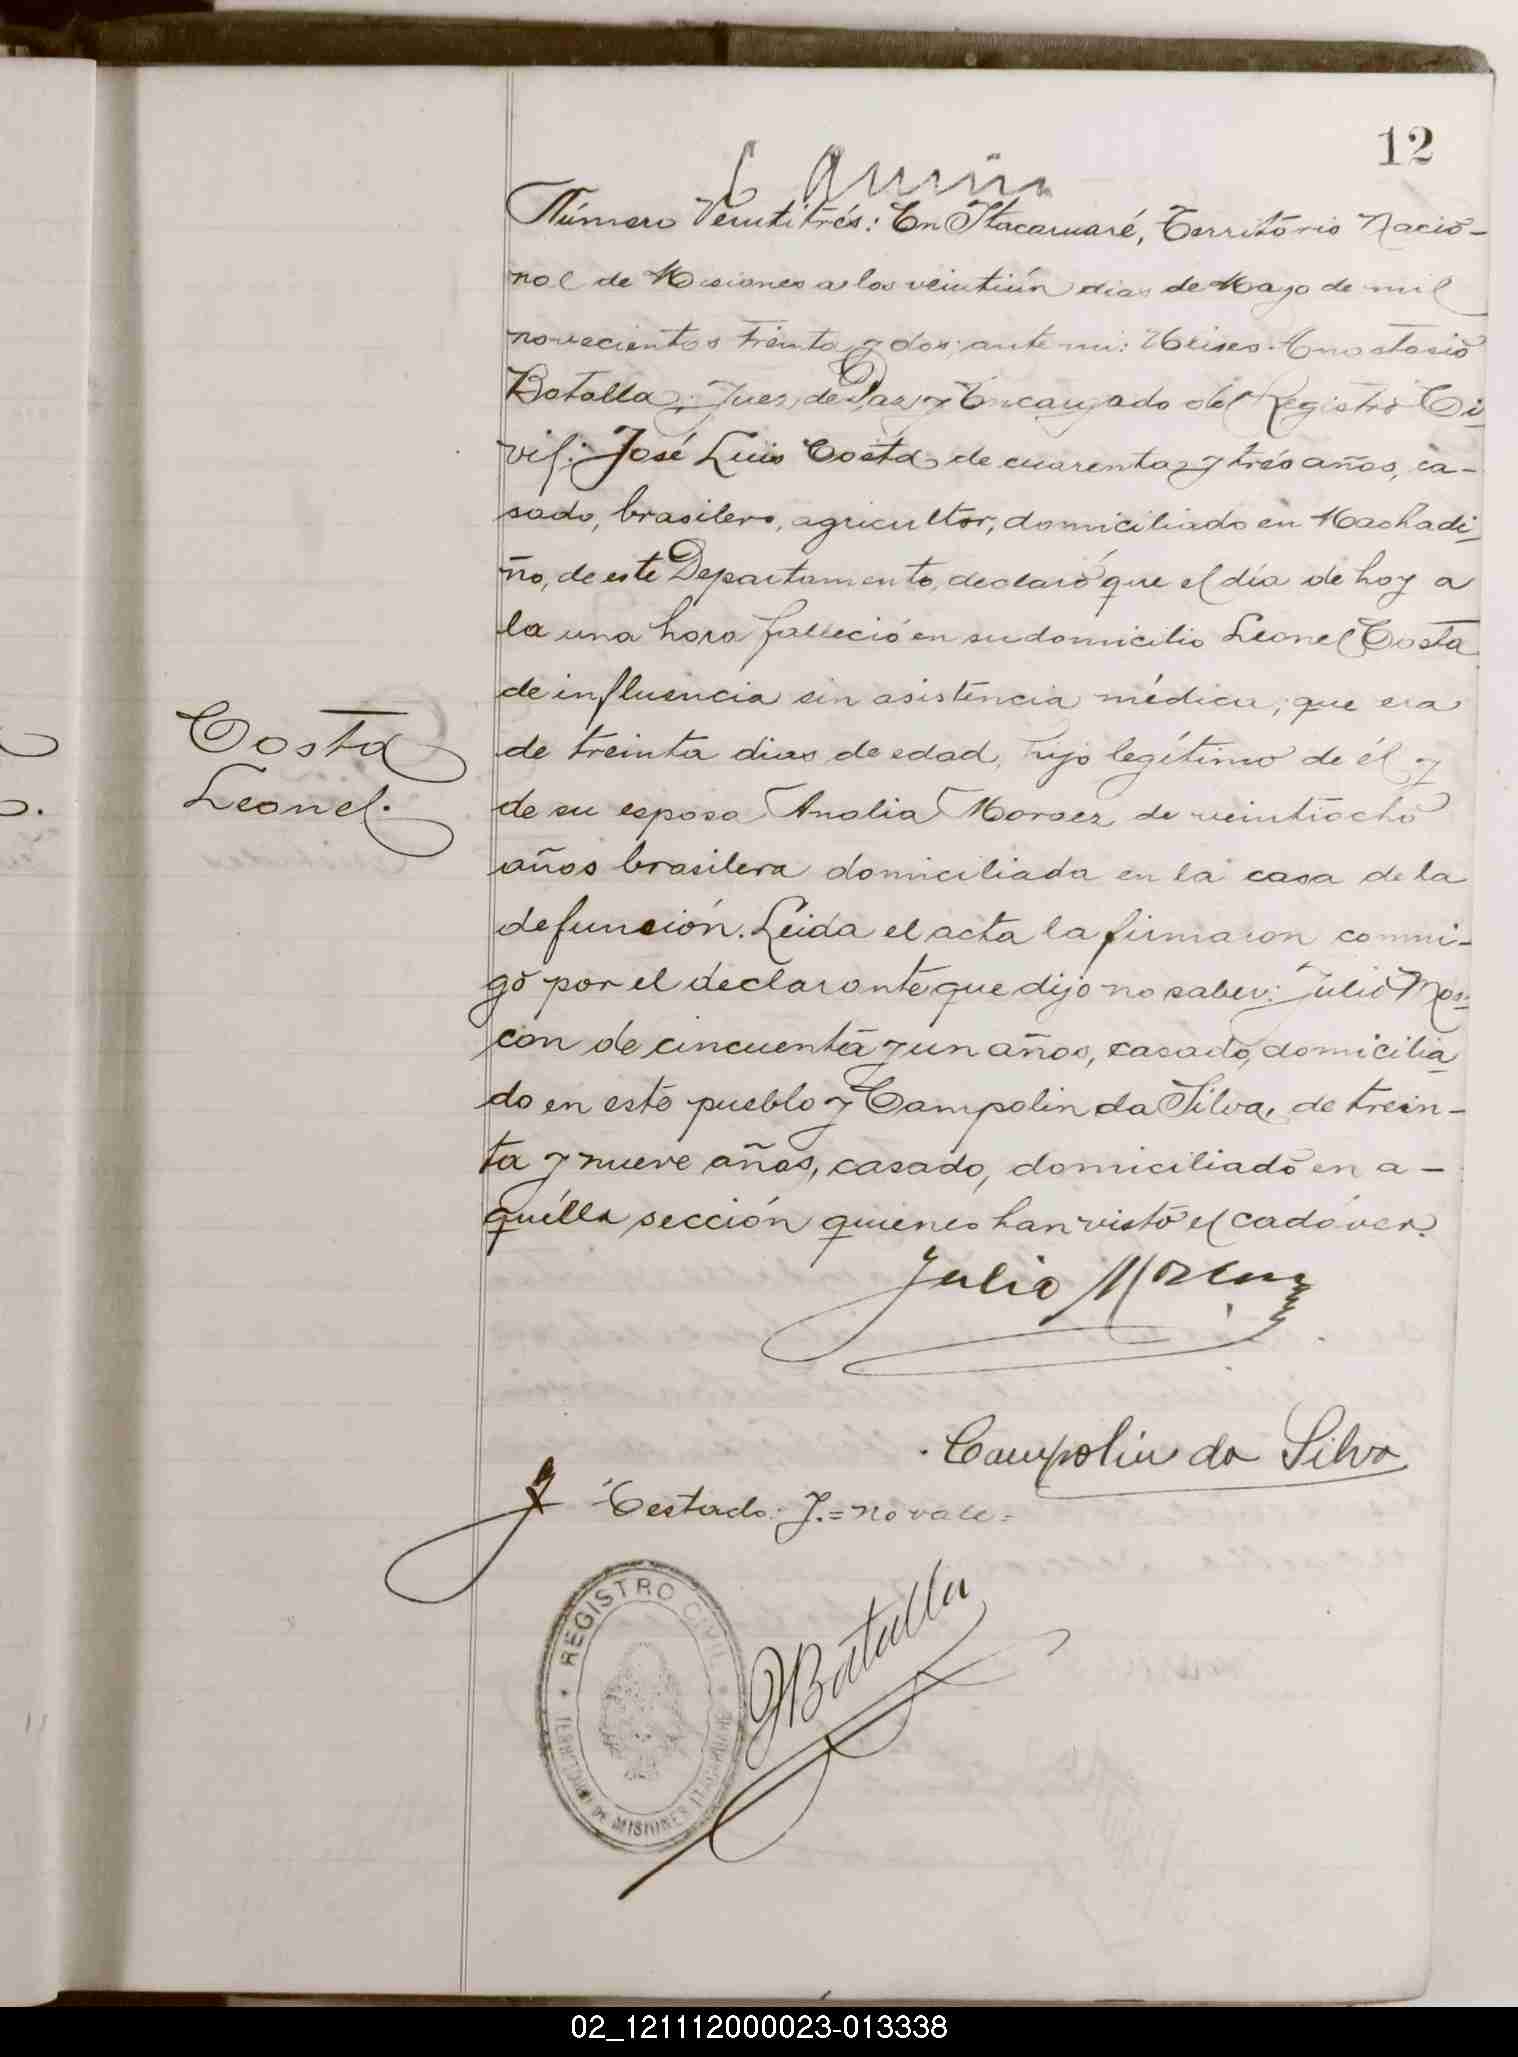 12
Número Veintitrés: En Itacaruaré, Territorio Nacio-
nal de Misiones a los veintiún dias de Mayo de mil
novecientos treinta y dos; ante mi: Anastasio
Batalla, Juez de Paz y Encargado del Registro Ci-
vil: José Luis Costa de cuarenta y trés años, ca-
sado, brasilero, agricultor, domiciliado en Machadi-
ño, de este Departamento, declaró que el día de hoy a
la una hora falleció en su domicilio Leonel Costa
de influencia sin asistencia médica; que era
de treinta dias de edad, hijo legítimo de él y
Costa
Leonel.
de su esposa Analia Moraez de veintiocho
años brasilera domiciliada en la casa de la
defunción. Leida el acta la firmaron conmi-
go por el declarante que dijo no saber: Julio Mos-
con de cincuenta y un años, casado, domicilia-
do en este pueblo y Campolin da Silva, de trein-
ta y nueve años, casado, domiciliado en a-
quélla sección quienes han visto el cadáver.
Julio
Campolin da Silva
Testado: J.= no vale=
REGISTRO CIVIL
TERRITORIO DE MISIONES ITACARUARE
Batalla
02_121112000023-013338